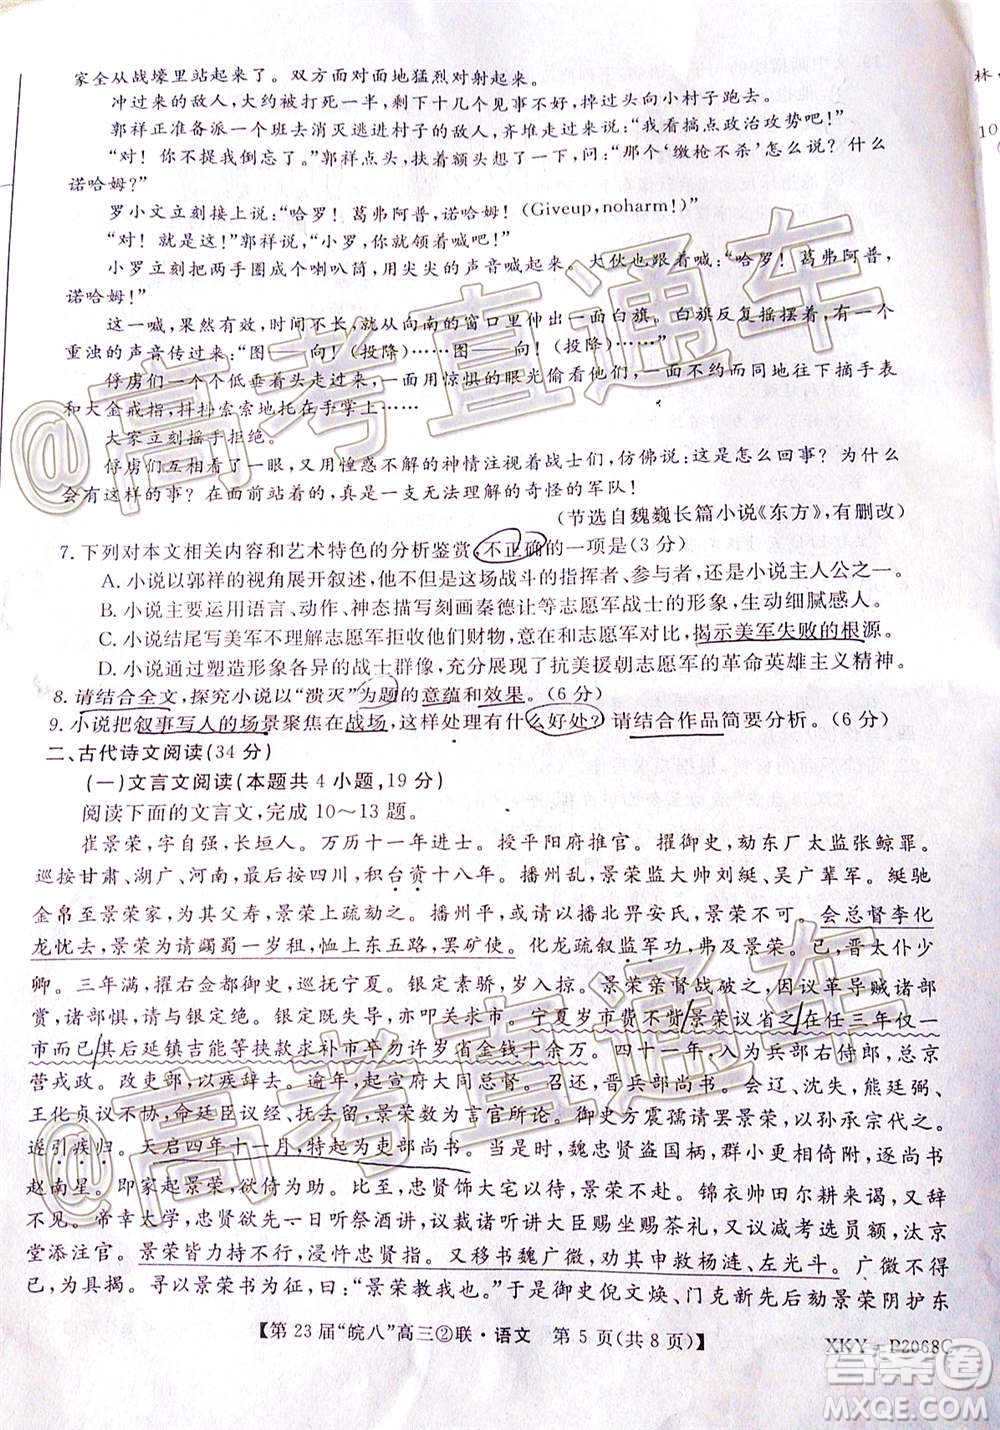 家全从战壕里站起来了。双方面对面地猛烈对射起来。
冲过来的敌人，大约被打死一半，剩下十几个见事不好，掉过头向小村子跑去。
郭祥正准备派一个班去消灭逃进村子的敌人，齐堆说：“我看搞点政治攻势吧！”
“对！你不提我倒忘了。”郭祥点点头，拧着额头想了一下，问：“那个‘缴枪不杀’怎么说？什么
诺哈姆？”
罗小文立刻接上说：“哈罗！葛弗阿普，诺哈姆！（Giveup,noharm!）”
“对！就是这个！”郭祥说，“小罗，你领着喊吧！”
小罗立刻把两手圈成个喇叭筒，用尖尖的声音喊起来。大伙也跟着喊：“哈罗！葛弗阿普，
诺哈姆！”
这一喊，果然有效，时间不长，只见从向南的窗口里伸出一面白旗。白旗反复摇摆着，一个
重浊的声音传过来：“图——向！（投降）……图——向！（投降）……”
俘虏们一个个低垂着头走过来……用惊惧的眼光偷偷看着大家，并且不约而同地往下摘手表
和大金戒指，抖抖索索地托在手掌上……
大家立刻摇手拒绝。
俘虏们互相看了一眼，又用惶惑不解的神情注视着战士们，仿佛说：这是怎么回事？为什么
会有这样的事？在面前站着的，是一支无法理解的奇怪的军队！
（节选自魏巍长篇小说《东方》，有删改）
7.下列对本文相关内容和艺术特色的分析鉴赏，不正确的一项是(3分)
A.小说以郭祥的视角展开叙述，他不但是这场战斗的指挥者、参与者，还是小说主人公之一。
B.小说主要运用语言、动作、神态描写刻画秦德让等志愿军战士的形象，生动细腻感人。
C.小说结尾写美军不理解志愿军拒收他们财物，实质是美军与志愿军对比，揭示美军失败的根源。
D.小说通过塑造形象各异的战士群像，充分展现了抗美援朝志愿军的革命英雄主义精神。
8.请结合全文，探究小说以“溃灭”为题的意蕴和效果。(6分)
9.小说把叙事写人的场景聚焦在战场，这样处理有什么好处？请结合作品简要分析。(6分)
二、古代诗文阅读(34分)
(一)文言文阅读(本题共4小题，19分)
阅读下面的文言文，完成10～13题。
崔景荣，字自强，长垣人。万历十一年进士。授平阳府推官。擢御史，劾东厂太监张鲸罪。
巡按甘肃、湖广、河南，最后按四川，积台资十八年。播州乱，景荣监大帅刘綎、吴广辈军。綎驰
金帛至景荣家，为其父寿，景荣上疏劾之。播州平，或请以播北畀安氏，景荣不可。会总督李化
龙忧去，景荣为请蠲蜀一岁租，恤上东五路，罢矿使。化龙疏叙监军功，弗及景荣。已，晋太仆少
卿。三年满，擢右佥都御史，巡抚宁夏。银定素骄，岁入掠。景荣亲督战破之，因议革导贼诸部
赏，诸部惧，请与银定绝。银定既失导，亦叩关求市。宁夏岁市费不赀景荣议省之在任三年仅一
市而已其后延镇吉能等挟款求补市卒勿许岁省金钱十余万。四十一年，入为兵部右侍郎，总京
营戎政。改吏部，以疾辞去。久之，起宣府大同总督。召还，晋兵部尚书。会辽、沈失，熊廷弼、
王化贞议不协，命廷臣议经、抚去留，景荣数为言官所论。御史方震孺请罢景荣，以孙承宗代之，
遂引疾归。天启四年十一月，特起为吏部尚书。当是时，魏忠贤盗国柄，群小更相倚附，逐尚书
赵南星。即家起景荣，欲倚为助。比至，忠贤饰大宅以待，景荣不赴。锦衣帅田尔耕来谒，又辞
不见。帝幸太学，忠贤欲先一日听祭酒讲，议裁诸听讲大臣赐坐赐茶礼，又议减考选员额，汰京
堂添注官。景荣皆力持不行，浸忤忠贤指。又移书魏广微，劝其申救杨涟、左光斗。广微不得已，
为具揭。寻以景荣书为征，曰：“景荣教我也。”于是御史倪文焕、门克新先后劾景荣阴护东
【第23届“皖八”高三②联·语文 第5页(共8页)】
XKY P2068C
@高考直通车
答案圈
MXQE.COM